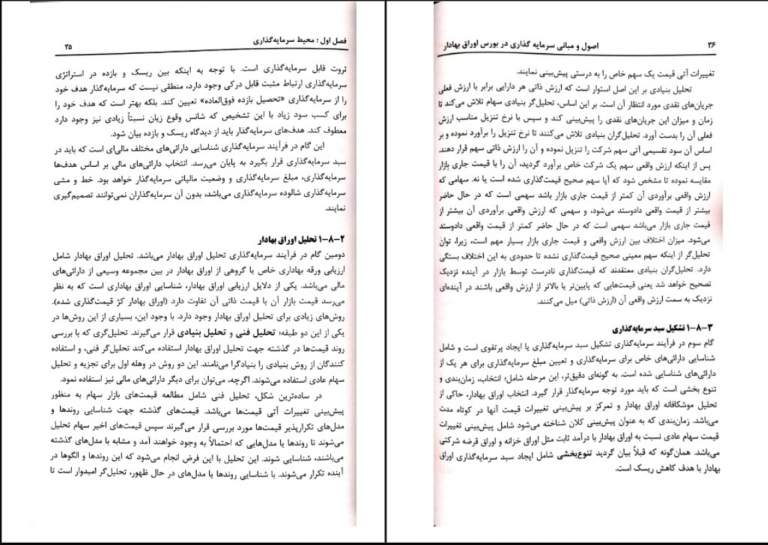 فصل اول : محیط سرمایه‌گذاری ۲۵
ثروت قابل سرمایه‌گذاری است. با توجه به اینکه بین ریسک و بازده در استراتژی
سرمایه‌گذاری ارتباط مثبت قابل درکی وجود دارد، منطقی نیست که سرمایه‌گذار هدف خود
را از سرمایه‌گذاری «تحصیل بازده فوق‌العاده» تعیین کند. بلکه بهتر است که هدف خود را
برای کسب سود زیاد با این تشخیص که شانس وقوع زیان نسبتاً زیادی نیز وجود دارد
معطوف کند. هدف‌های سرمایه‌گذار باید از دیدگاه ریسک و بازده بیان شود.
این گام در فرآیند سرمایه‌گذاری شناسایی دارائی‌های مختلف مالی‌ای است که باید در
سبد سرمایه‌گذاری قرار بگیرد به پایان می‌رسد. انتخاب دارائی‌های مالی بر اساس هدف‌ها
سرمایه‌گذاری، مبلغ سرمایه‌گذاری و وضعیت مالیاتی سرمایه‌گذار خواهد بود. خط و مشی
سرمایه‌گذاری شالوده سرمایه‌گذاری می‌باشد، بدون آن سرمایه‌گذاران نمی‌توانند تصمیم‌گیری
نمایند.
۱-۸-۲ تحلیل اوراق بهادار
دومین گام در فرآیند سرمایه‌گذاری تحلیل اوراق بهادار می‌باشد. تحلیل اوراق بهادار شامل
ارزیابی ورقه بهاداری خاص یا گروهی از اوراق بهادار در بین مجموعه وسیعی از دارائی‌های
مالی می‌باشد. یکی از دلایل ارزیابی اوراق بهادار، شناسایی اوراق بهاداری است که به نظر
می‌رسد قیمت بازار آن با قیمت ذاتی آن تفاوت دارد (اوراق بهادار کژ قیمت‌گذاری شده).
روش‌های زیادی برای تحلیل اوراق بهادار وجود دارد. با وجود این، بسیاری از این روش‌ها در
یکی از این دو طبقه؛ تحلیل فنی و تحلیل بنیادی قرار می‌گیرند. تحلیل‌گری که با بررسی
روند قیمت‌ها در گذشته جهت تحلیل اوراق بهادار استفاده می‌کند تحلیل‌گر فنی، و استفاده
کنندگان از روش بنیادی را بنیادگرا می‌نامند. این دو روش در وهله اول برای تجزیه و تحلیل
سهام عادی استفاده می‌شوند. اگرچه، می‌توان برای دیگر دارائی‌های مالی نیز استفاده نمود.
در ساده‌ترین شکل، تحلیل فنی شامل مطالعه قیمت‌های بازار سهام به منظور
پیش‌بینی تغییرات آتی قیمت‌ها می‌باشد. قیمت‌های گذشته جهت شناسایی روندها و
مدل‌های تکرارپذیر قیمت‌ها مورد بررسی قرار می‌گیرند سپس قیمت‌های اخیر سهام تحلیل
می‌شوند تا روندها یا مدل‌هایی که احتمالاً به وجود خواهند آمد و مشابه با مدل‌های گذشته
می‌باشند، شناسایی شوند. این تحلیل با این فرض انجام می‌شود که این روندها و الگوها در
آینده تکرار می‌شوند. با شناسایی روندها یا مدل‌های در حال ظهور، تحلیل‌گر امیدوار است تا
۲۶ اصول و مبانی سرمایه گذاری در بورس اوراق بهادار
تغییرات آتی قیمت یک سهم خاص را به درستی پیش‌بینی نمایند.
تحلیل بنیادی بر این اصل استوار است که ارزش ذاتی هر دارایی برابر با ارزش فعلی
جریان‌های نقدی مورد انتظار آن است. بر این اساس، تحلیل‌گر بنیادی سهام تلاش می‌کند تا
زمان و میزان این جریان‌های نقدی را پیش‌بینی کند و سپس با نرخ تنزیل مناسب ارزش
فعلی آن را بدست آورد. تحلیل‌گران بنیادی تلاش می‌کنند تا نرخ تنزیل را برآورد نموده و بر
اساس آن سود تقسیمی آتی سهم شرکت را تنزیل نموده و آن را ارزش ذاتی سهم قرار دهند.
پس از اینکه ارزش واقعی سهم یک شرکت خاص برآورد گردید، آن را با قیمت جاری بازار
مقایسه نموده تا مشخص شود که آیا سهم صحیح قیمت‌گذاری شده است یا نه. سهامی که
ارزش واقعی برآوردی آن کمتر از قیمت جاری بازار باشد سهمی است که در حال حاضر
بیشتر از قیمت واقعی دادوستد می‌شود، و سهمی که ارزش واقعی برآوردی آن بیشتر از
قیمت جاری بازار می‌باشد سهمی است که در حال حاضر کمتر از قیمت واقعی دادوستد
می‌شود. میزان اختلاف بین ارزش واقعی و قیمت جاری بازار بسیار مهم است، زیرا، توان
تحلیل‌گر از اینکه سهم معینی صحیح قیمت‌گذاری نشده تا حدودی به این اختلاف بستگی
دارد. تحلیل‌گران بنیادی معتقدند که قیمت‌گذاری نادرست توسط بازار در آینده نزدیک
تصحیح خواهد شد یعنی قیمت‌هایی که پایین‌تر یا بالاتر از ارزش واقعی باشند در آینده‌ای
نزدیک به سمت ارزش واقعی آن (ارزش ذاتی) میل می‌کنند.
۱-۸-۳ تشکیل سبد سرمایه‌گذاری
گام سوم در فرآیند سرمایه‌گذاری تشکیل سبد سرمایه‌گذاری یا ایجاد پرتفوی است و شامل
شناسایی دارائی‌های خاص برای سرمایه‌گذاری و تعیین مبلغ سرمایه‌گذاری برای هر یک از
دارائی‌های شناسایی شده است. به گونه‌ای دقیق‌تر، این مرحله شامل؛ انتخاب، زمان‌بندی و
تنوع بخشی است که باید مورد توجه سرمایه‌گذار قرار گیرد. انتخاب اوراق بهادار، حاکی از
تحلیل موشکافانه اوراق بهادار و تمرکز بر پیش‌بینی تغییرات قیمت آنها در کوتاه مدت
می‌باشد. زمان‌بندی که به عنوان پیش‌بینی کلان شناخته می‌شود شامل پیش‌بینی تغییرات
قیمت سهام عادی نسبت به اوراق بهادار با درآمد ثابت مثل اوراق خزانه و اوراق قرضه شرکتی
می‌باشد. همان‌گونه که قبلاً بیان گردید تنوع‌بخشی شامل ایجاد سبد سرمایه‌گذاری اوراق
بهادار با هدف کاهش ریسک است.